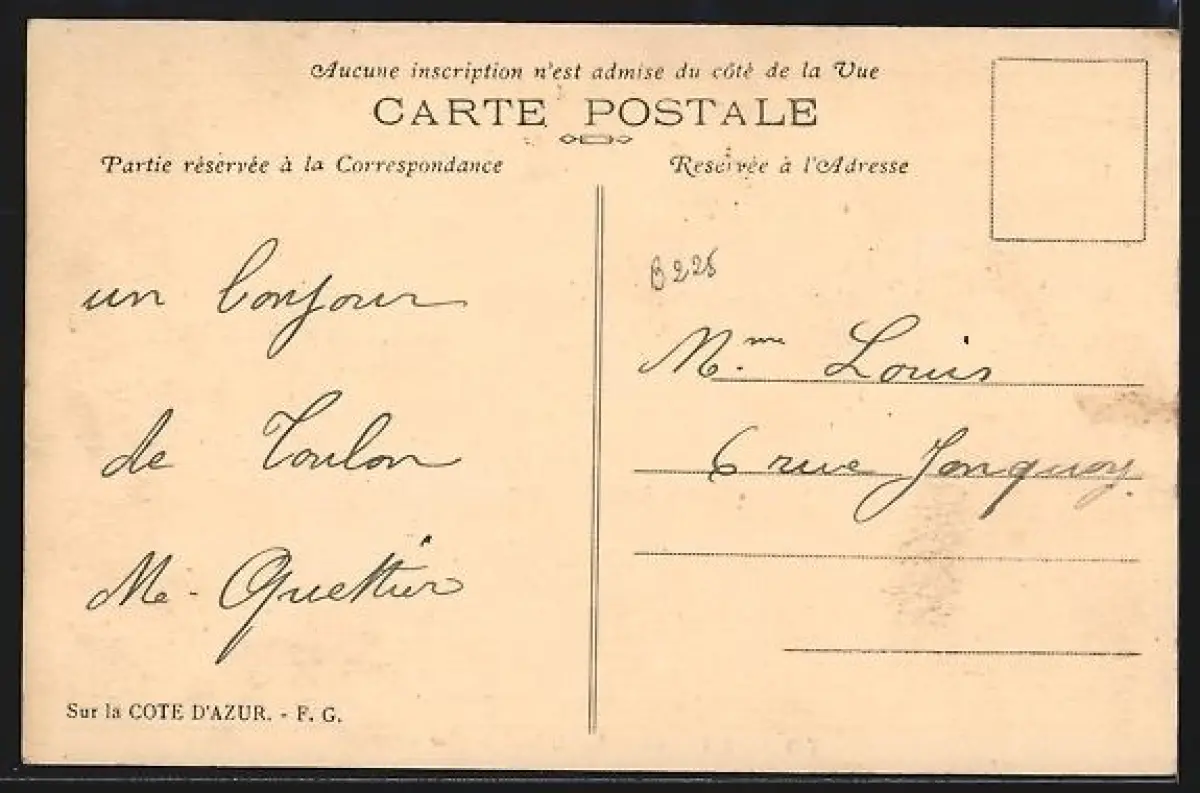 Aucune inscription n'est admise du côté de la Vue
CARTE POSTALE
Partie réservée à la Correspondance
Réservée à l'Adresse
un bonjour
de Toulon
Me - Quettier
Sur la COTE D'AZUR. - F. G.
B 226
Mme Louis
6 rue Jonquoy